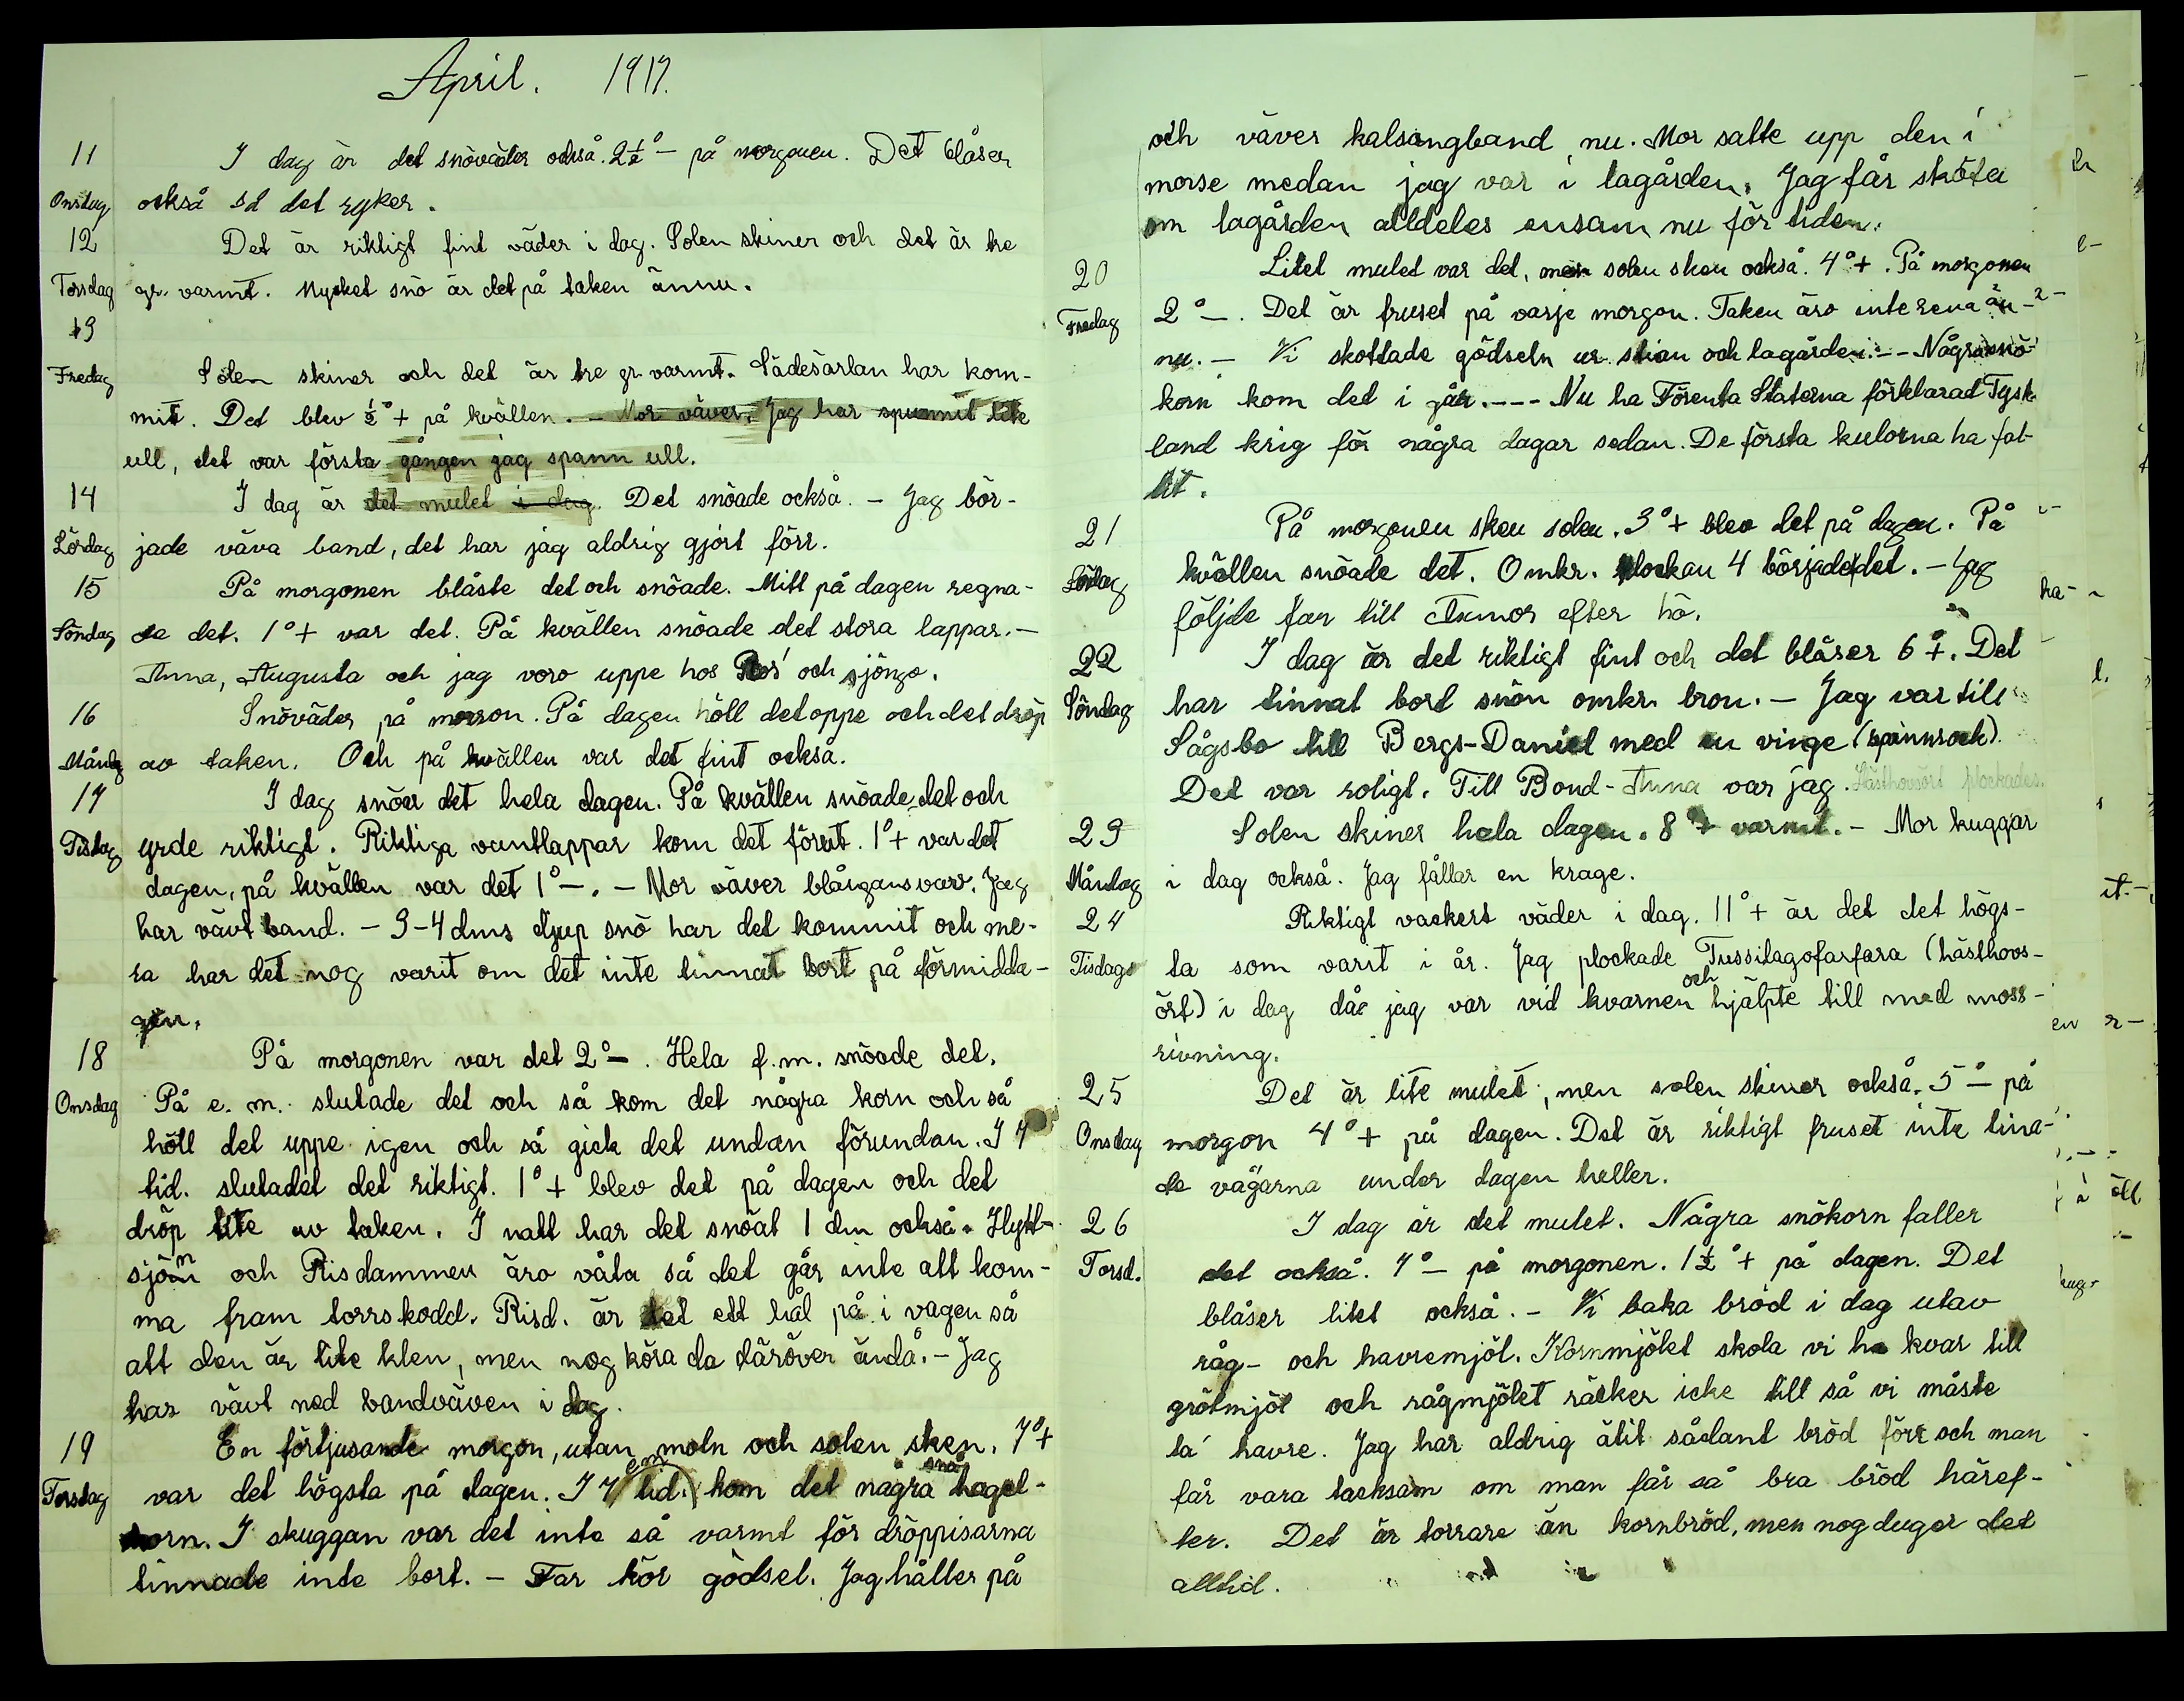 April. 1917.
11 I dag är det snöväder också. 2½°– på morgonen. Det blåser
Onsdag också så det ryker.
12 Det är riktigt fint väder i dag. Solen skiner och det är tre
Torsdag gr. varmt. Mycket snö är det på taken ännu.
13
Fredag Solen skiner och det är tre gr. varmt. Sädesärlan har kom-
mit. Det blev ½°+ på kvällen. – Mor väver. Jag har spunnit lite
ull, det var första gången jag spann ull.
14 I dag är det mulet i dag. Det snöade också. – Jag bör-
Lördag jade väva band, det har jag aldrig gjort förr.
15 På morgonen blåste det och snöade. Mitt på dagen regna-
Söndag de det. 1°+ var det. På kvällen snöade det stora lappar. –
Anna, Augusta och jag voro uppe hos Ros' och sjöngo.
16 Snöväder på morron. På dagen höll det oppe och det dröp
Måndg av taken. Och på kvällen var det fint också.
17 I dag snöar det hela dagen. På kvällen snöade det och
Tisdag yrde riktigt. Riktiga vantlappar kom det förut. 1°+ var det
dagen, på kvällen var det 1°–. – Mor väver blångarnsvarv. Jag
har vävt band. – 3-4 dms djup snö har det kommit och me-
ra har det nog varit om det inte tinnat bort på förmidda-
gen.
18 På morgonen var det 2°–. Hela f.m. snöade det.
Onsdag På e. m. slutade det och så kom det några korn och så
höll det uppe igen och så gick det undan förundan. I 7
tid. slutadet det riktigt. 1°+ blev det på dagen och det
dröp lite av taken. I natt har det snöat 1 dm också. Hytt-
sjön och Risdammen äro våta så det går inte att kom-
ma fram torrskodd. Risd. är det ett hål på i vagen så
att den är lite klen, men nog köra da däröver ändå. – Jag
har vävt ned bandväven i dag.
19 En förtjusande morgon, utan moln och solen sken. 7°+
Torsdag var det högsta på dagen. I 7 tid. em kom det några små hagel-
korn. I skuggan var det inte så varmt för dröppisarna
tinnade inte bort. – Far kör gödsel. Jag håller på
och väver kalsongband nu. Mor satte upp den i
morse medan jag var i lagården. Jag får sköta
om lagården alldeles ensam nu för tiden.
20 Litet mulet var det, men solen sken också. 4°+. På morgonen
Fredag 2°–. Det är fruset på varje morgon. Taken äro inte rena än-
nu. – Vi skottade gödseln ur stian och lagården. – – Några snö-
korn kom det i går. – – – Nu ha Förenta Staterna förklarad Tysk-
land krig för några dagar sedan. De första kulorna ha fal-
lit.
21 På morgonen sken solen. 3°+ blev det på dagen. På
Lördag kvällen snöade det. Omkr. klockan 4 började det. – Jag
följde far till Tunos efter hö.
22 I dag är det riktigt fint och det blåser 6°+. Det
Söndag har tinnat bort snön omkr. bron. – Jag var till
Sågsbo till Bergs-Daniel med en vinge (spinnrock).
Det var roligt. Till Bond-Anna var jag. Hästhovsört plockades.
23 Solen skiner hela dagen. 8°+ varmt. – Mor kuggar
Måndag i dag också. Jag fållar en krage.
24 Riktigt vackert väder i dag. 11°+ är det det högs-
Tisdags ta som varit i år. Jag plockade Tussilagofarfara (hästhovs-
ört) i dag då jag var vid kvarnen och hjälpte till med moss-
rivning.
25 Det är lite mulet, men solen skiner också. 5°– på
Onsdag morgon 4°+ på dagen. Det är riktigt fruset inte tina-
de vägarna under dagen heller.
26 I dag är det mulet. Några snökorn faller
Torsd. det också. 7°– på morgonen. 1½°+ på dagen. Det
blåser litet också. – Vi baka bröd i dag utav
råg- och havremjöl. Kornmjölet skola vi ha kvar till
grötmjöl och rågmjölet räcker icke till så vi måste
ta' havre. Jag har aldrig ätit sådant bröd förr och man
får vara tacksam om man får så bra bröd häref-
ter. Det är torrare än kornbröd, men nog duger det
alltid.